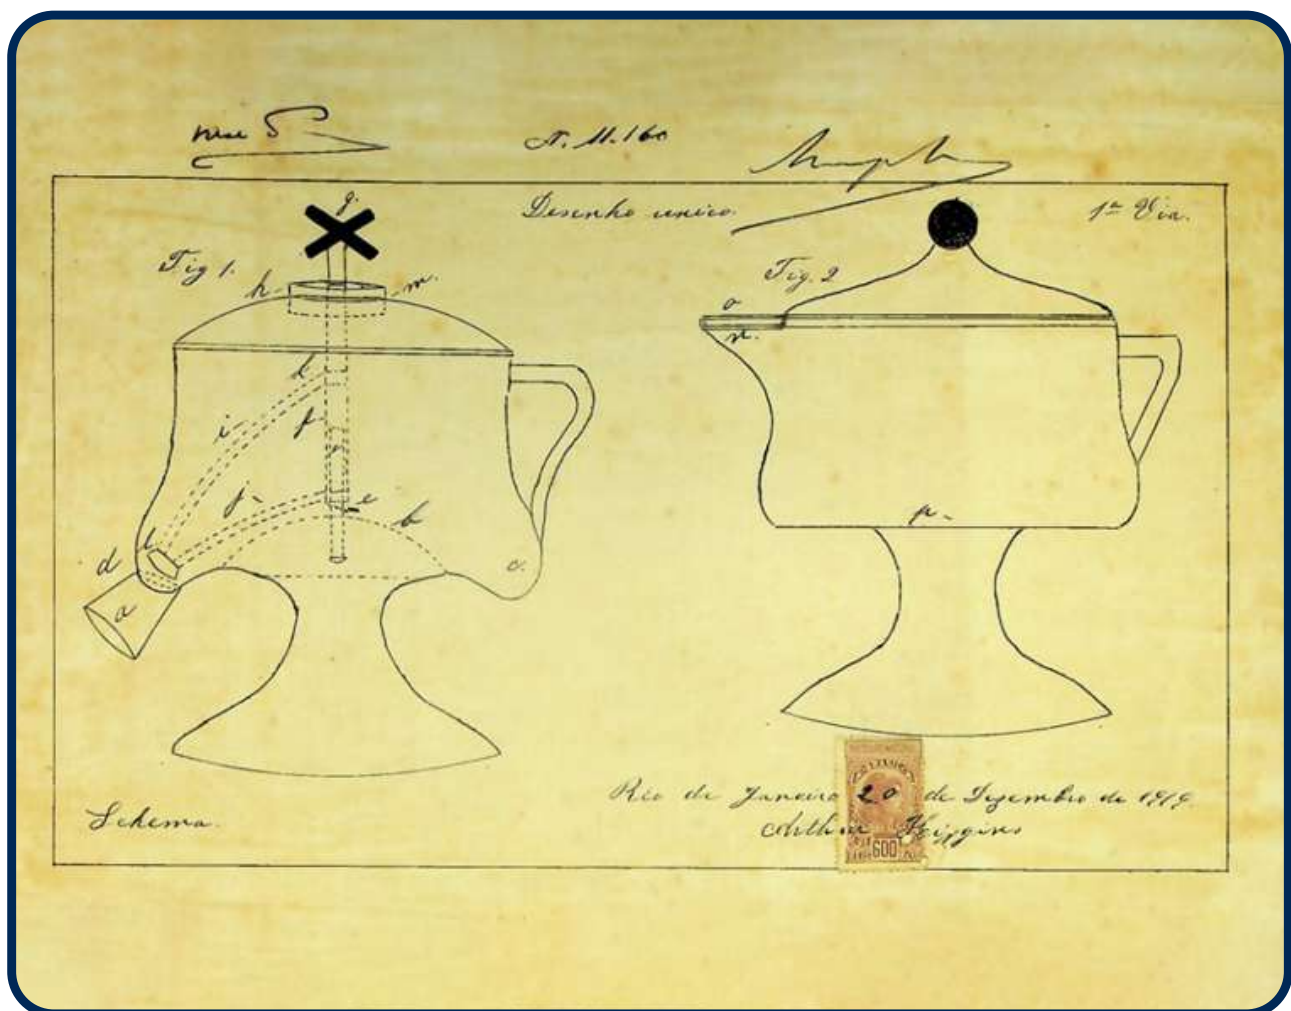 N. 11.160
Desenho unico.
1ª Via.
Fig 1.
Fig. 2
g.
h
m.
o
n.
l
i
f
j
e
b
d
l
a
c.
p
Schema.
Rio de Janeiro 20 de Dezembro de 1919.
Arthur Higgins
600